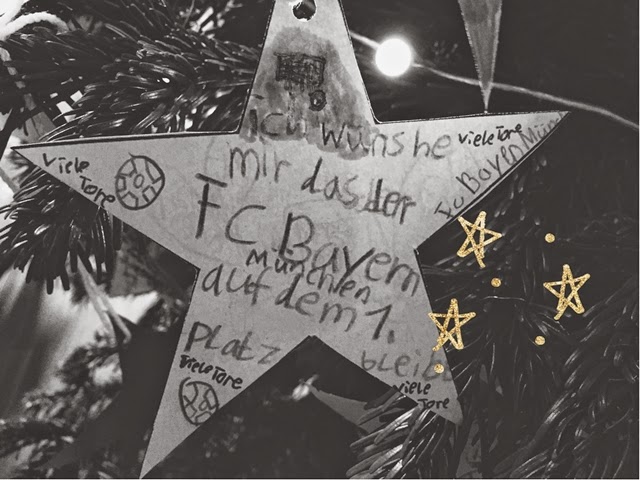 ich wünshe
mir das der
FC Bayern
München
auf dem 1.
Platz
bleibt
Viele
Tore
Viele Tore
Fc Bayen Mün
Viele Tore
Viele
Tore